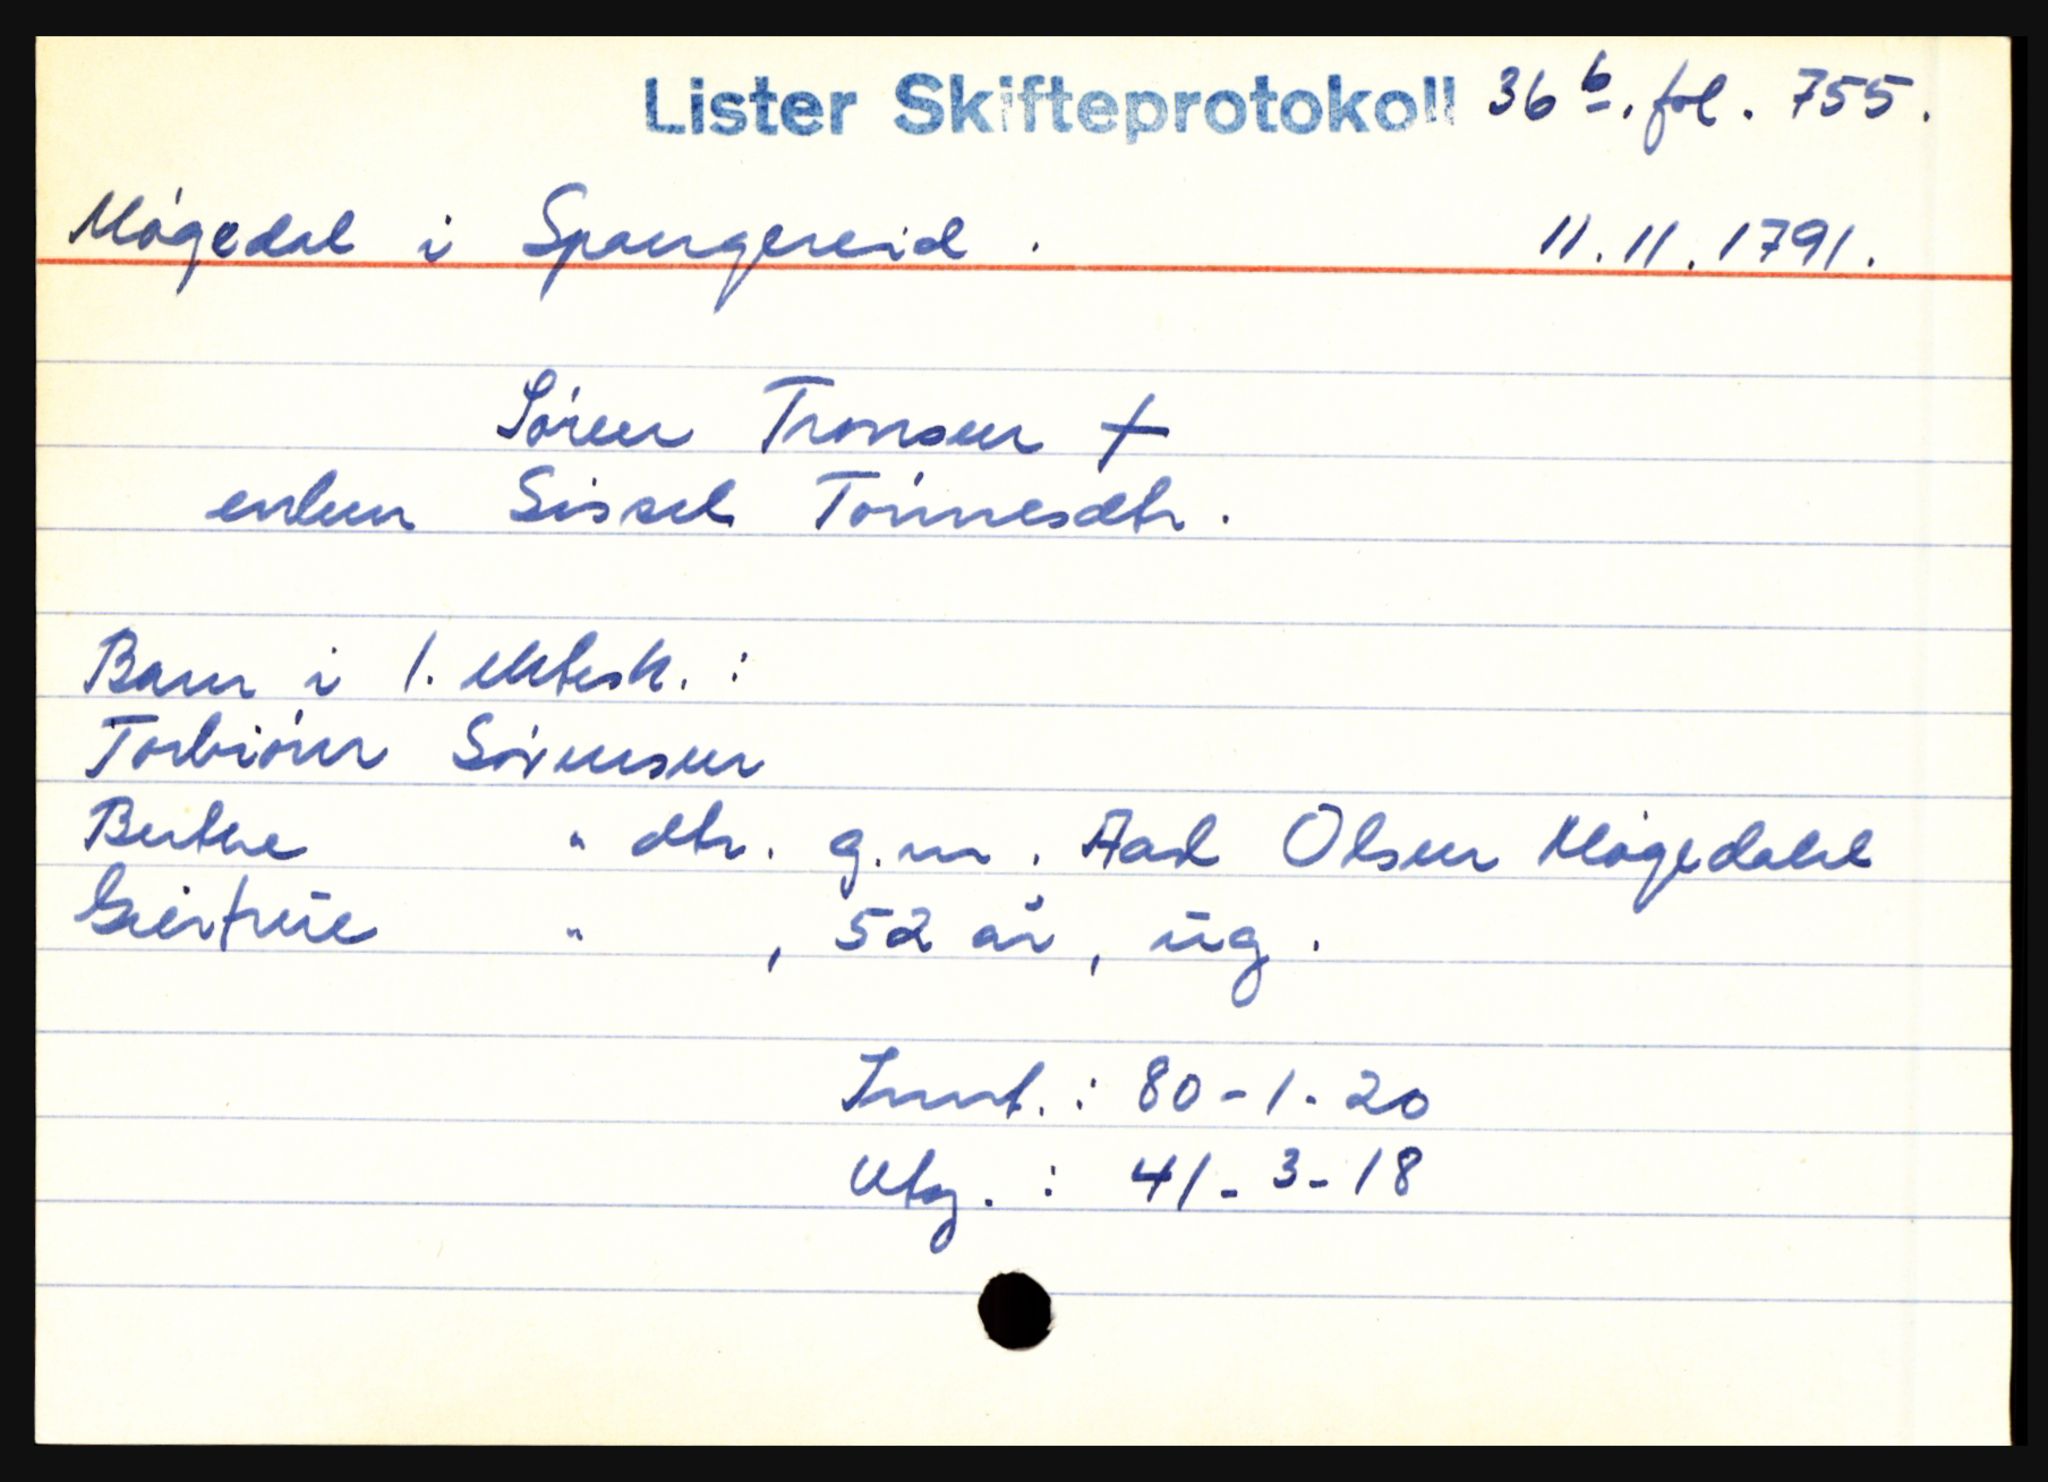 Lister Skifteprotokoll 36 b. fol. 755.
Møgedal i Spangereid. 11.11.1791.
Søren Tronsen †
enken Sissel Tönnesdtr.
Barn i 1. ektesk. :
Torbiörn Sörensen
Berthe " dtr. g.m. Aad Olsen Møgedahl
Giertrue " , 52 år, ug.
Innt. : 80-1-20
Utg. : 41-3-18